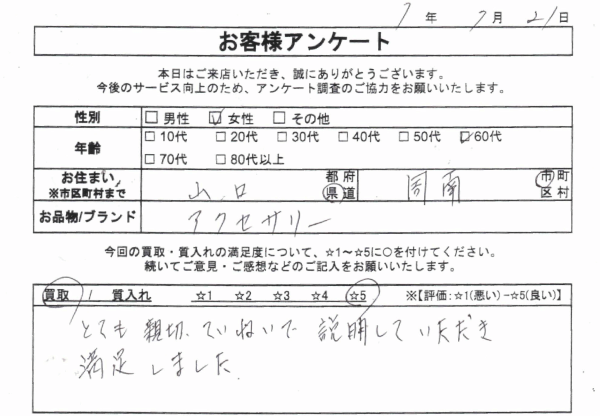 7年 7月 21日
お客様アンケート
本日はご来店いただき、誠にありがとうございます。
今後のサービス向上のため、アンケート調査のご協力をお願いいたします。
性別 □ 男性 ☑ 女性 □ その他
年齢 □ 10代 □ 20代 □ 30代 □ 40代 □ 50代 ☑ 60代
□ 70代 □ 80代以上
お住まい 山口 都府県道 周南 市町区村
※市区町村まで
お品物/ブランド アクセサリー
今回の買取・質入れの満足度について、☆1～☆5に○を付けてください。
続いてご意見・ご感想などのご記入をお願いいたします。
買取 / 質入れ ☆1 ☆2 ☆3 ☆4 ☆5 ※【評価:☆1(悪い)-☆5(良い)】
とても親切、ていねいで説明していただき
満足しました